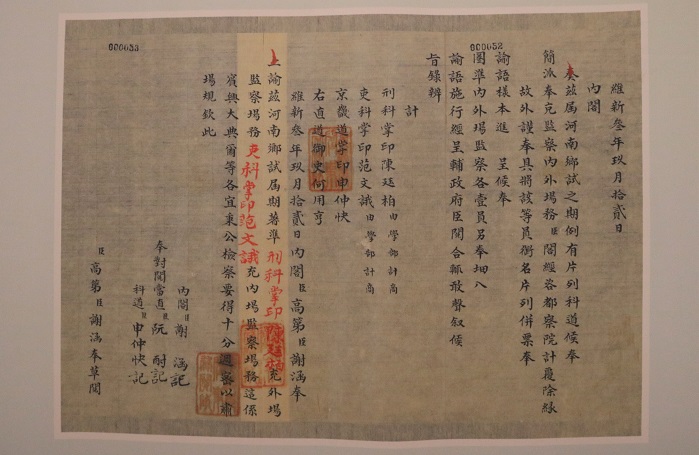 000052
000053
維新叁年玖月拾貳日
內閣
奏茲属河南鄉試之期例有片列科道候奉
簡派奉充監察內外場務臣閣經咨都察院計覆除緣
故外謹奉具將該等員銜名片列併票奉
諭語樣本進呈候奉
圈準內外場監察各壹員另奉
論語施行經呈輔政府臣閣合輒敬聲叙候
旨錄辨
計
刑科掌印陳廷柏由學部計商
吏科掌印范文誐由學部計商
京畿道掌印申仲快
右直道御史何用亨
維新叁年玖月拾貳日內閣臣高第臣謝涵奉
上諭茲河南鄉試属期著準刑科掌印陳廷柏充外場
監察場務吏科掌印范文誐充內場監察場務這係
賓興大典爾等各宜秉公檢察要得十分週密以肅
場規欽此
內閣臣謝涵記
奉對閱當直臣阮酎記
科道臣申仲快記
臣高第臣謝涵奉草閱